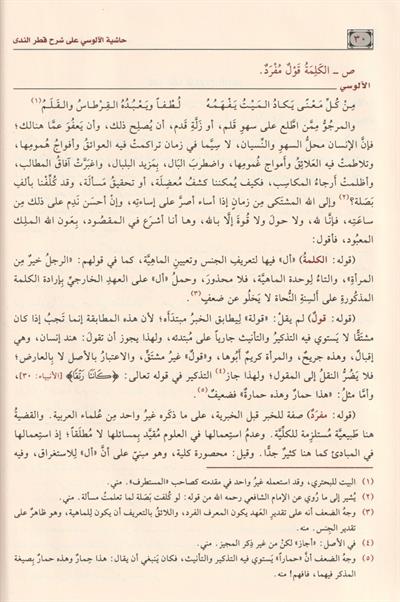 ٣٠
حاشية الآلوسي على شرح قطر الندى
ص ـ الكَلِمَةُ قَوْلٌ مُفْرَدٌ.
الآلوسي
مِنْ كُلِّ مَعْنًى يَكادُ المَيْتُ يَفْهَمُهُ لُطْفاً وَيَعْبُدُهُ القِرْطاسُ والقَلَمُ(١)
والمرجُوُّ مِمَّن اطَّلع على سهوِ قلم، أو زَلَّةِ قدم، أن يُصلِح ذلك، وأن يَعفُوَ عمَّا هنالك؛
فإنَّ الإنسان محلُّ السهوِ والنِّسيان، لا سِيَّما في زمان تراكمتْ فيه العوائقُ وأفواجُ هُمومِها،
وتلاطمتْ فيه العلائقُ وأمواج غُمومِها، واضطربَ البَال، بمَزيد البلبال، واغبَرَّتْ آفاقُ المطالب،
وأظلمتْ أرجاءُ المكاسِب، فكيف يُمكننا كشفُ مُعضِلة، أو تحقيقُ مَسألة، وقد كُلِّفْنا بألفِ
بَصَلة؟(٢) وإلى الله المُشتكَى مِن زمانٍ إذا أساء أصرَّ على إساءته، وإنْ أحسَن نَدِم على ذلك مِن
ساعَتِه، فإنَّا لله، ولا حول ولا قُوةَ إلَّا بالله، وها أنا أشرَع في المقصُود، بعَون الله الملِك
المعبُود، فأقول:
(قوله: الكلمةُ) «أل» فيها لتعريفِ الجنسِ وتعيينِ الماهيَّة، كما في قولهم: «الرجلُ خيرٌ مِن
المرأةِ»، والتاءُ لِوحدة الماهيَّة، فلا محذورَ، وحملُ «أل» على العهدِ الخارجيِّ بإرادة الكلمة
المذكُورةِ على ألسِنةِ النُّحاة لا يَخلُو عن ضَعفٍ(٣).
(قوله: قولٌ) لم يقلْ: «قولة» ليطابق الخبرُ مبتدَأَه؛ لأن هذه المطابقة إنما تَجبُ إذا كان
مشتقًّا لا يَستوي فيه التذكيرُ والتأنيث جارياً على مُبتدئه، ولهذا يجوز أن تقولَ: هند إنسان، وهي
إقبال، وهذه جريح، والمرأة كريم أبُوها، و«قول» غيرُ مشتَقٍّ، والاعتبارُ بالأصل لا بالعارض؛
فلا يَضُرُّ النقلُ إلى المقول؛ ولهذا جاز(٤) التذكير في قوله تعالى: ﴿كَانَنَا رَتْقًا﴾ [الأنبياء: ٣٠]،
وأمَّا مثلُ: «هذا حمارٌ وهذه حمارةٌ» فضَعيفٌ(٥).
(قوله: مفرَدٌ) صفة للخبر قبل الخبرية، على ما ذكَره غيرُ واحد مِن عُلماء العربية. والقضيةُ
هنا طَبيعيَّة مُستلزِمة للكلِّيَّة. وعدمُ استعمالِها في العلوم مُقيَّد بِمسائلها لا مُطلَقاً؛ إذ استعمالُها
في المبادئ كما هنا كثيرٌ جدًّا. وقيل: محصورة كلية، وهو مبنيٌّ على أنَّ «أل» لِلاستغراق، وفيه
(١) البيت للبحتري، وقد استعمله غير واحد في مقدمته كصاحب «المستطرف». مني.
(٢) يُشير إلى ما رُوي عن الإمام الشافعي رحمه الله من قوله: لو كُلفت بَصَلة لما تعلمتُ مسألة. مني.
(٣) وجهُ الضعف أنه على تقديرِ العهد يكون المعرف الفرد، واللائقُ بالتعريف أن يكون لِلماهية، وهو ظاهرٌ على
تقدير الجِنس. منه.
(٤) في الأصل: «أجاز» لكنْ من غير ذِكر المجيز. مني.
(٥) وجهُ الضعف أنَّ «حماراً» يَستوي فيه التذكير والتأنيث، فكان يَنبغي أن يقال: هذا حِمارٌ وهذه حمارٌ بِصيغة
المذكر فيهما، فافهم! منه.